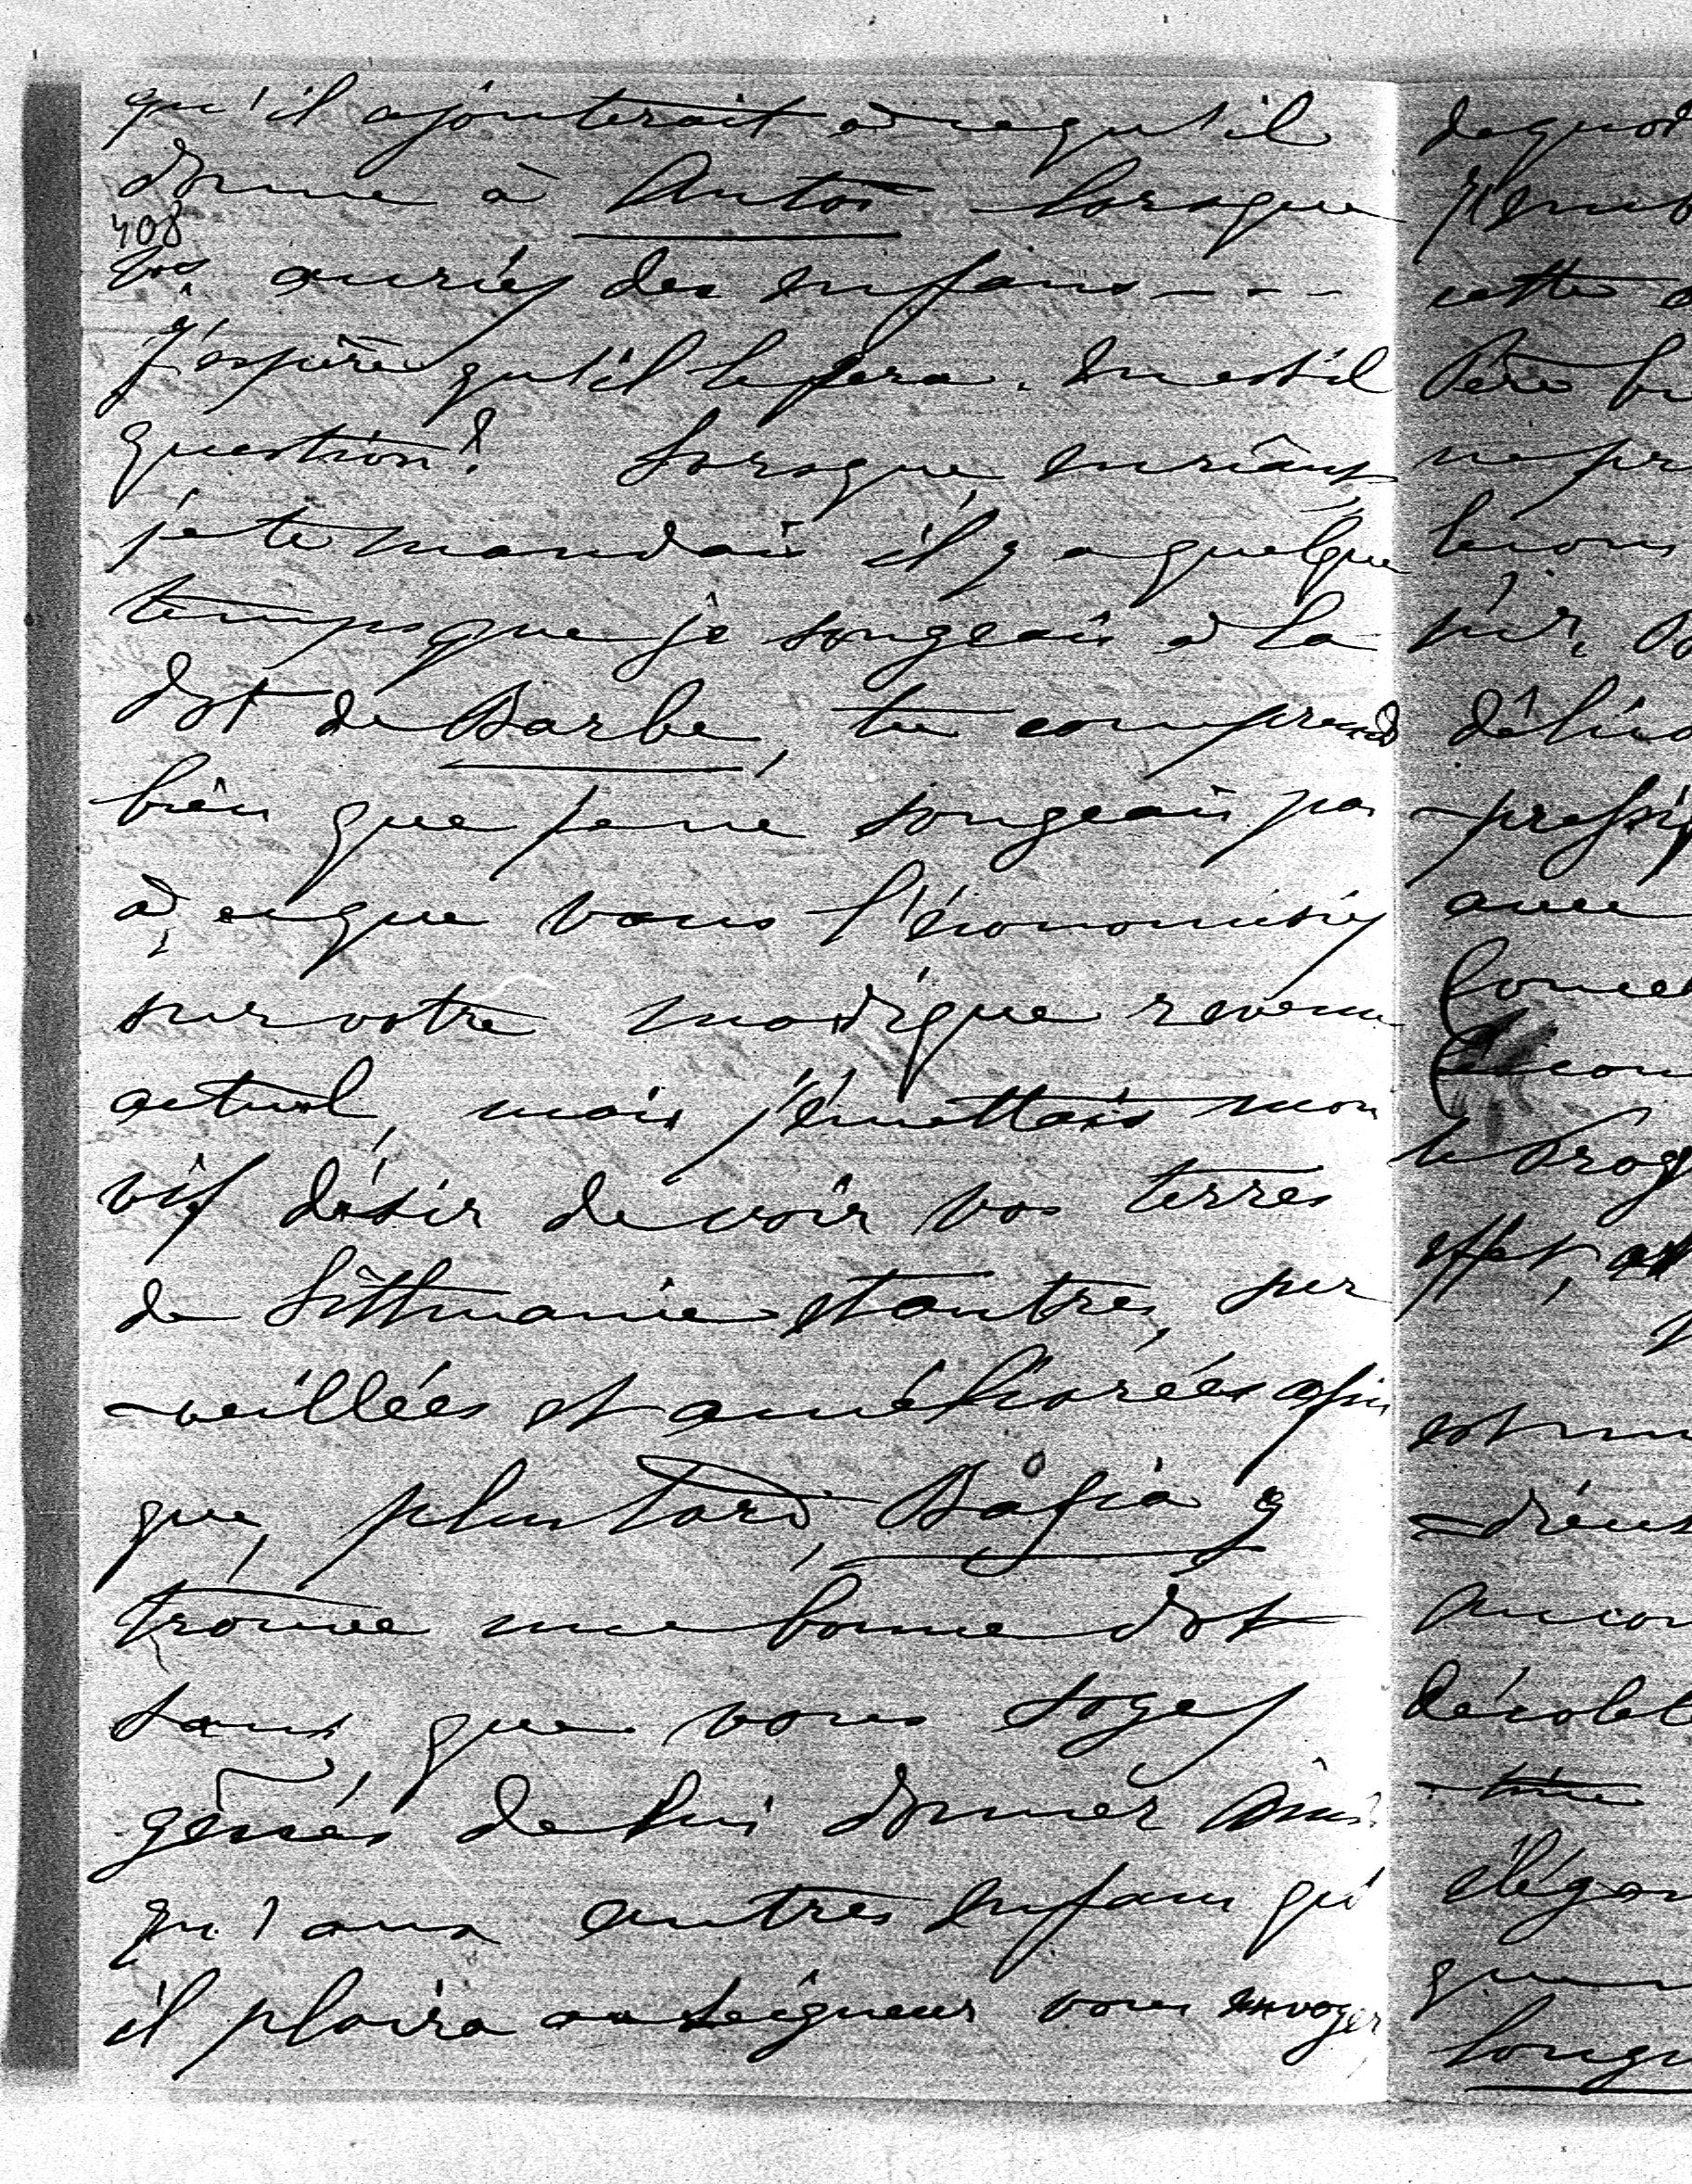 qu'il ajouterait à ce qu'il
donne à Antos lorsque
408
vs auriez des enfans - - -
j'espère qu'il le fera. En est il
question? Lorsque, en riant,
je te mandais il y a quelque
temps que je songeais à la
dot de Barbe, tu comprends
bien que je ne songeais pas
à ce que vous l'économisiez
sur votre modique revenu
actuel, mais j'émettais mon
vif désir de voir vos terres
de Litthuanie et autres, sur
-veillées et améliorées afin
que, plus tard, Basia y
trouve une bonne dot
sans, que vous soyez
gênés de lui donner ainsi
qu'aux autres enfans qu'
il plaira au Seigneur vous envoyer
de quoi
cette
Père
ne
tenons
nir,
avec
le Prog
effet,
élégan
longu